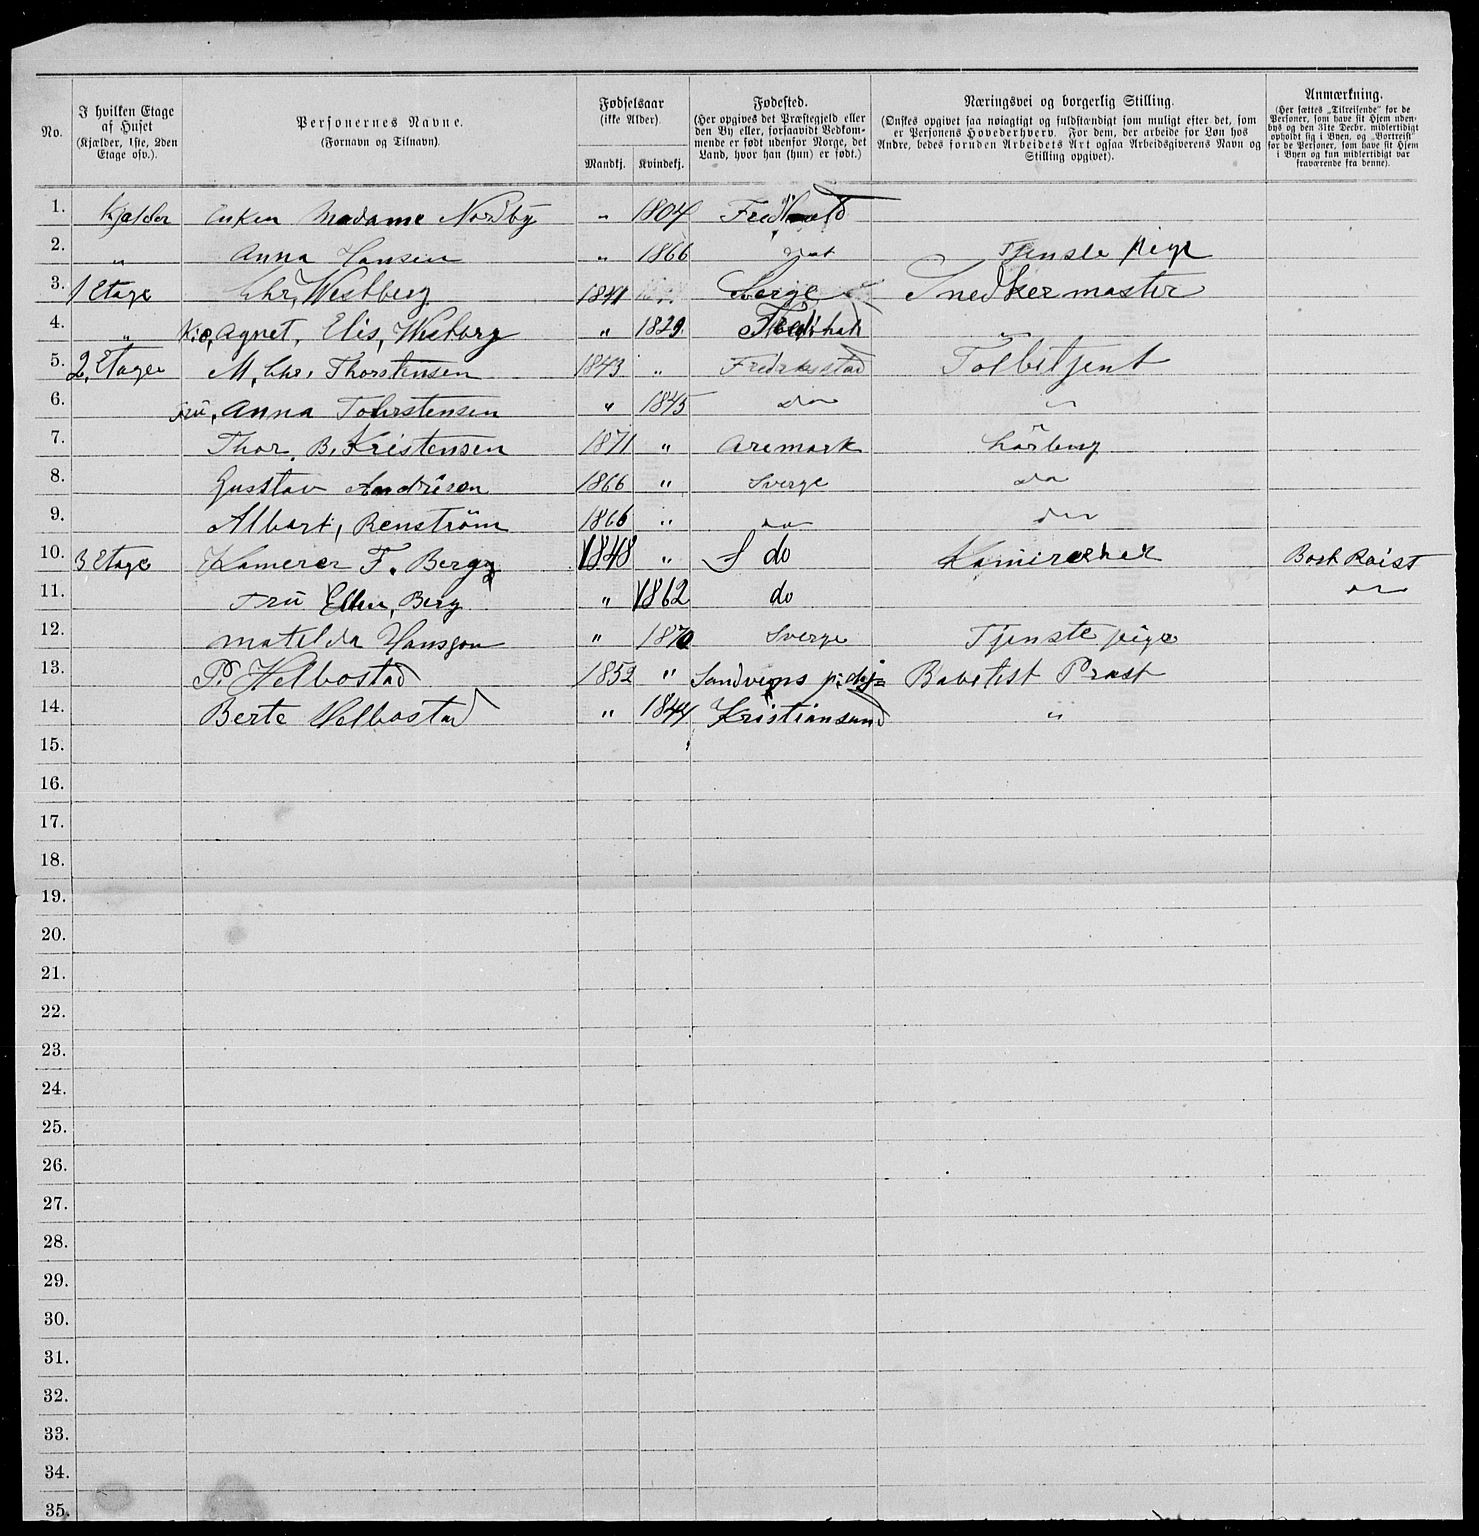 No. | I hvilken Etage af Huset (Kjælder, 1ste, 2den Etage osv.). | Personernes Navne. (Fornavn og Tilnavn). | Fødselsaar (ikke Alder) Mandkj. | Kvindekj. | Fødested. (Her opgives det Præstegjeld eller den By eller, forsaavidt Vedkommende er født udenfor Norge, det Land, hvor han (hun) er født.) | Næringsvei og borgerlig Stilling. (Ønskes opgivet saa nøiagtigt og fuldstændigt som muligt efter det, som er Personens Hovederhverv. For dem, der arbeide for Løn hos Andre, bedes foruden Arbeidets Art ogsaa Arbeidsgiverens Navn og Stilling opgivet). | Anmærkning. (Her sættes „Tilreisende" for de Personer, som have sit Hjem udenbys og den 31te Decbr. midlertidigt opholdt sig i Byen, og „Bortreist" for de Personer, som have sit Hjem i Byen og kun midlertidigt var fraværende fra denne).
1. Kjælder Enken Madame Nordby " 1804 Fredhald
2. " Anna Hansen " 1866 Tjenste pige
3. 1 Etage Chr, Westberg 1841 Sverge Snedker master
4. " Agnet, Elis, Wesberg " 1829 Fredshald "
5. 2, Etage M, Chr, Thorstensen 1843 " Fredrikstad Tolbetjent
6. Fru, Anna Tohrstensen " 1845 do "
7. Thor. B. Kristensen 1871 " Aremark Lørling
8. Gusstav Andrisen 1866 " Sverge do
9. Albart, Renstrøm 1866 " do do
10. 3 Etage Kamerer F. Berg 1848 " S do Bort Raist
11. Fru Ellen, Berg " 1862 do do
12. Matilda Hansson " 1870 Sverge Tjenste pige
13. P. Helbostad 1852 " Babtist Præst
14. Berte Helbostad " 1844 Kristiansund "
15.
16.
17.
18.
19.
20.
21.
22.
23.
24.
25.
26.
27.
28.
29.
30.
31.
32.
33.
34.
35.